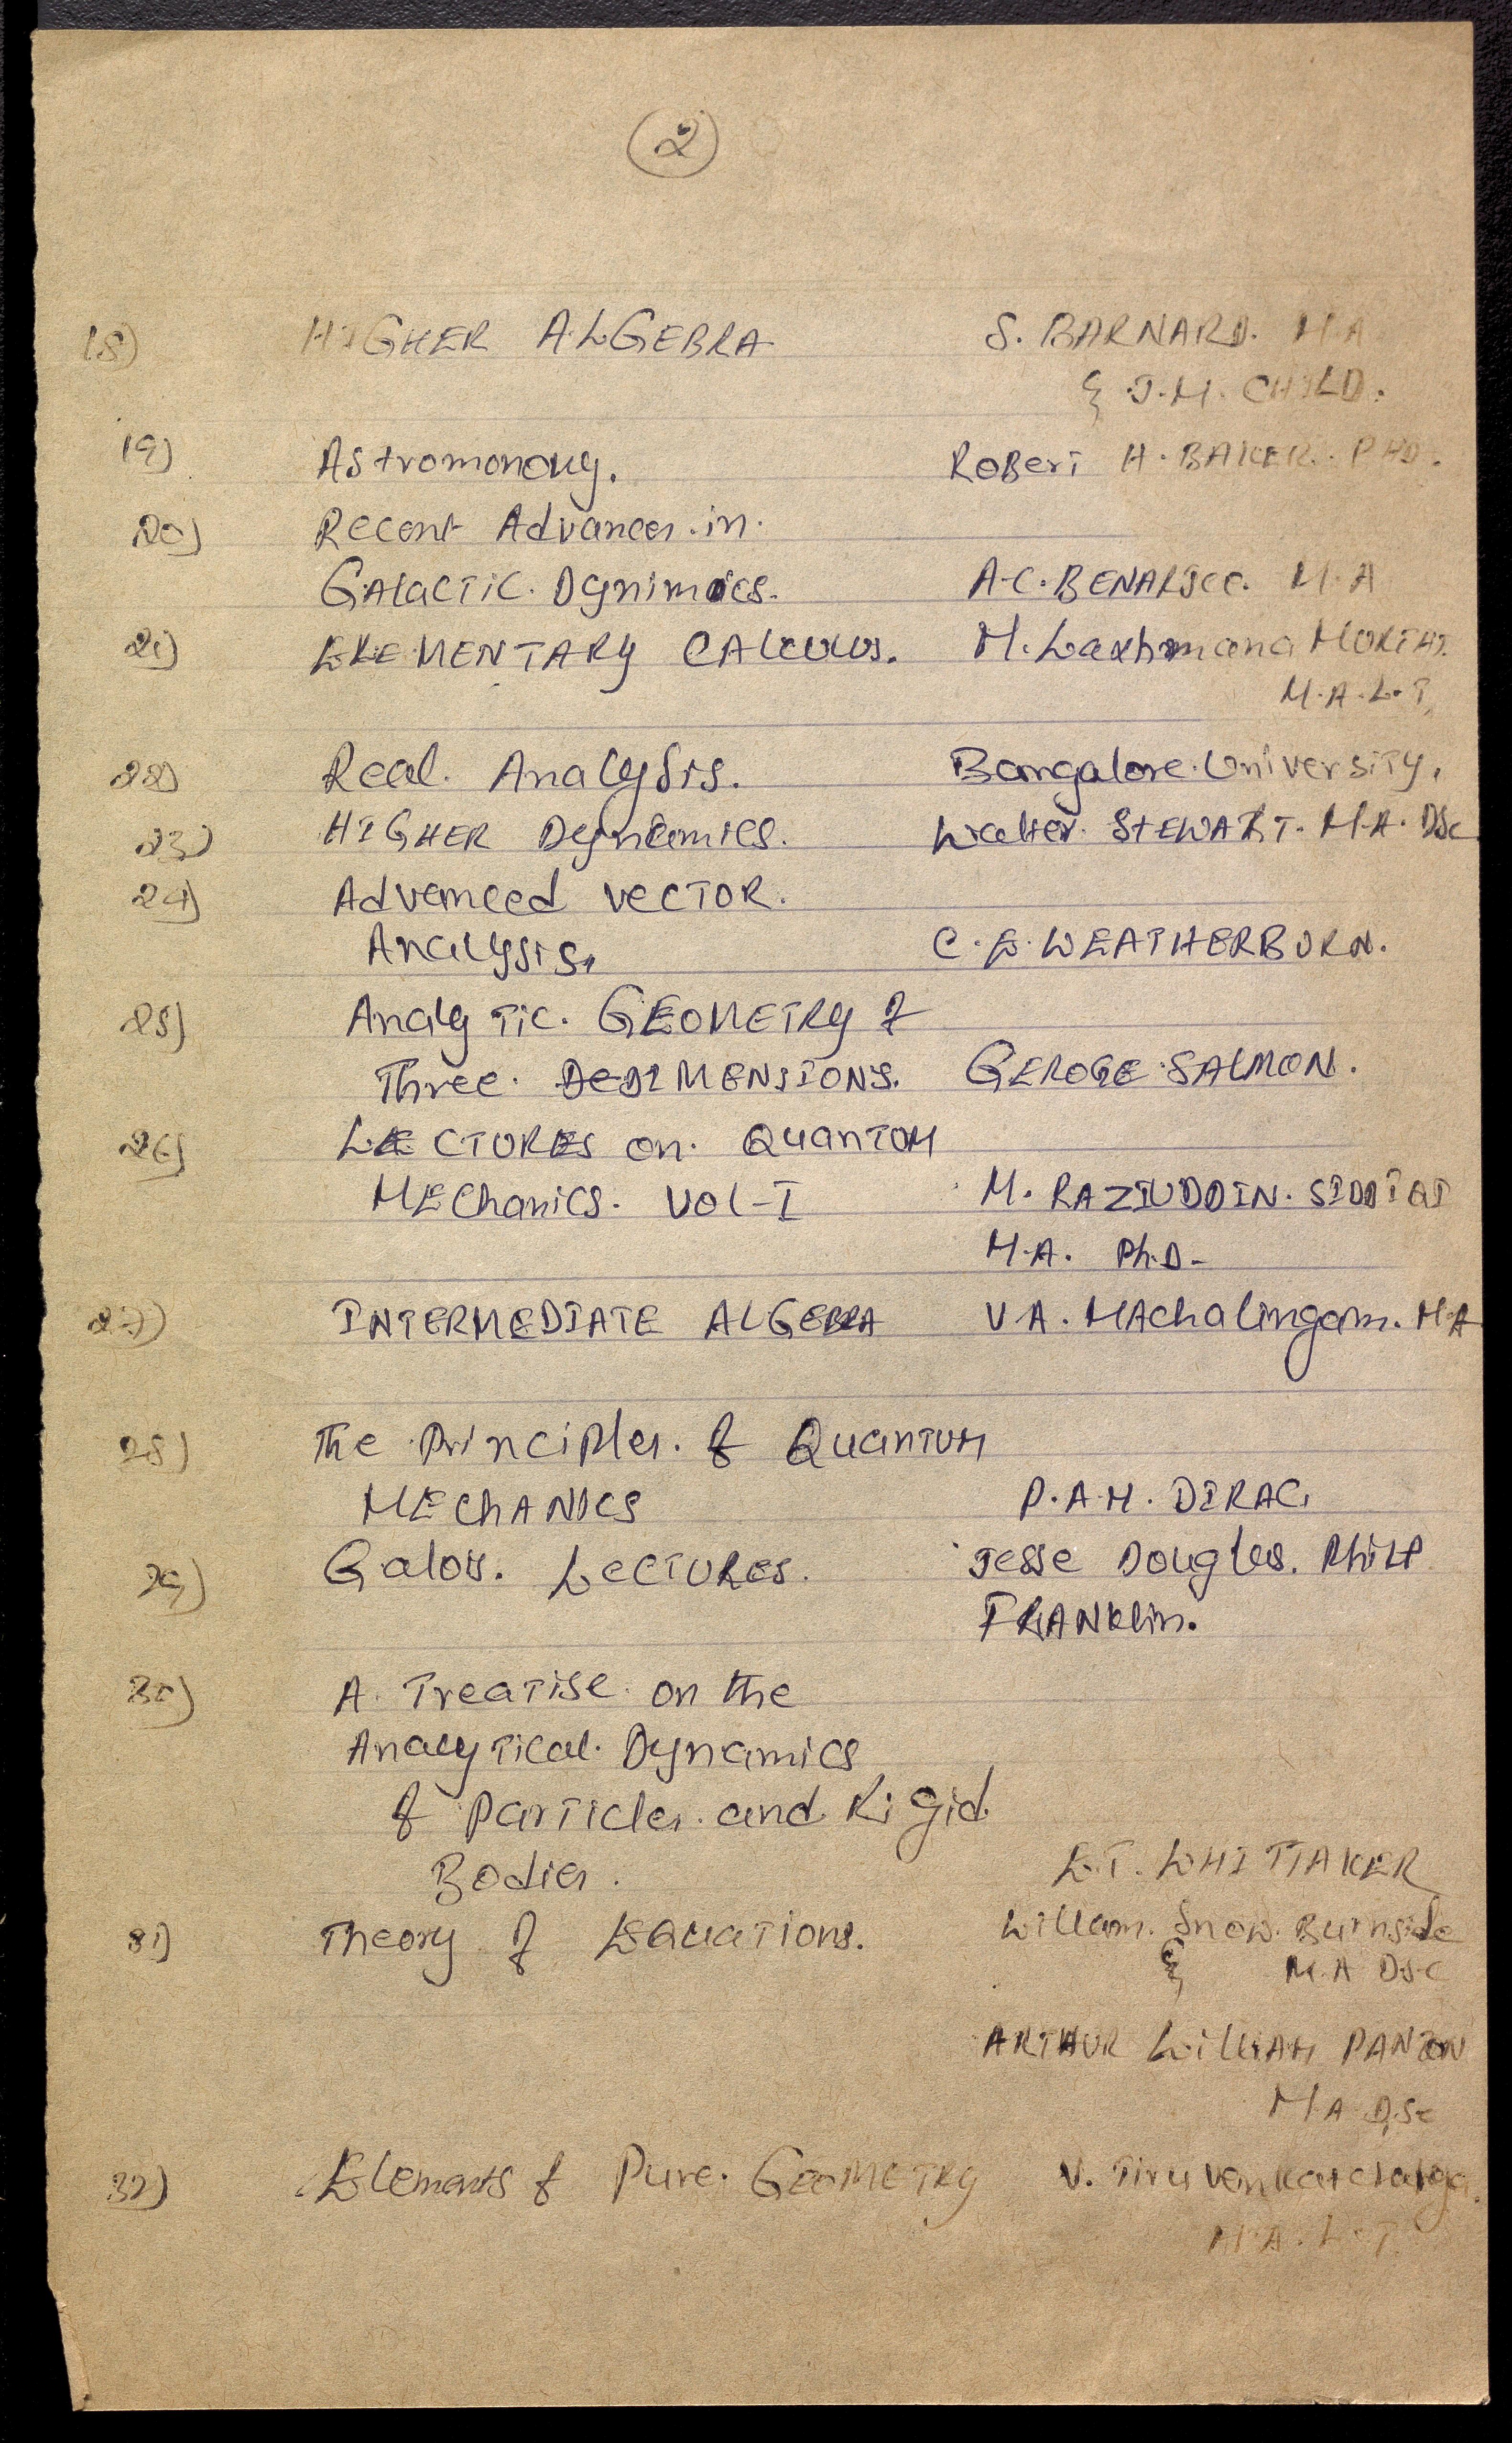 2
18) HIGHER ALGEBRA S. BARNARD. M.A
& J.M. CHILD.
19) Astromonony. Robert H. BAKER. PHD.
20) Recent Advances in.
GALACTIC. Dynimoics. A.C. BENARJee. M.A
21) ELEMENTARY CALCULUS. M. Laxhmana MORTHI.
M.A.L.T.
22) Real. Analysis. Bangalore University,
23) HIGHER Dynamics. Walter. STEWART. M.A. DSc
24) Advanced VECTOR.
Analysis, C.E. WEATHERBURN.
25) Analytic. GEOMETRY of
Three. DEDIMENSIONS. GEROGE SALMON.
26) LECTURES on. QUANTUM
MEChanics. Vol-I M. RAZIUDDIN. SIDDIQI
M.A. Ph.D-
27) INTERMEDIATE ALGEBRA V.A. MAChalingam. M.A
28) The Principles. of QUANTUM
MEChANICS P.A.M. DIRAC,
29) Galois. LECTURES. Jesse Douglas. PhilP
FRANKlin.
30) A. Treatise on the
Analytical. Dynamics
of Particles. and Rigid.
Bodies. E.T. WHITTAKER
31) Theory of EQUATIONS. William. Snow. Burnside
& M.A DSC
ARTHUR WilliAM PANTON
M.A D.Sc
32) Elements of Pure. GEOMETRY V.
M.A. L.T.